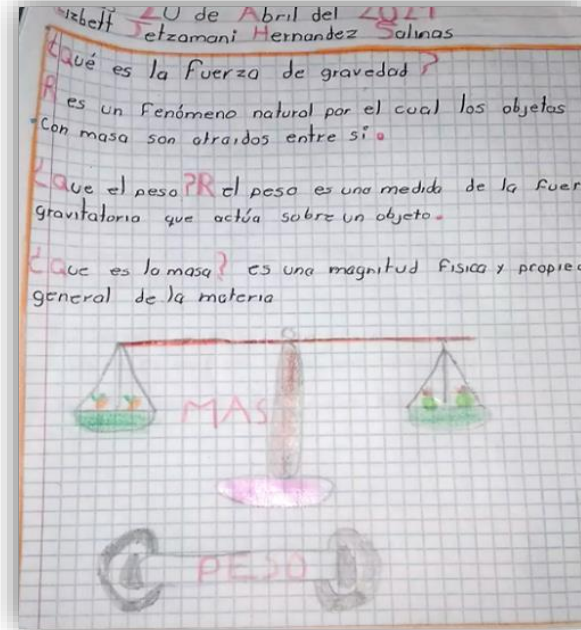 20 de Abril del 2021
Jetzamani Hernandez Salinas
¿Qué es la fuerza de gravedad?
R es un fenómeno natural por el cual los objetos
con masa son atraidos entre si.
¿Que el peso? R el peso es una medida de la fuer
gravitatoria que actúa sobre un objeto.
¿Que es la masa? es una magnitud fisica y propied
general de la materia
MAS
PESO